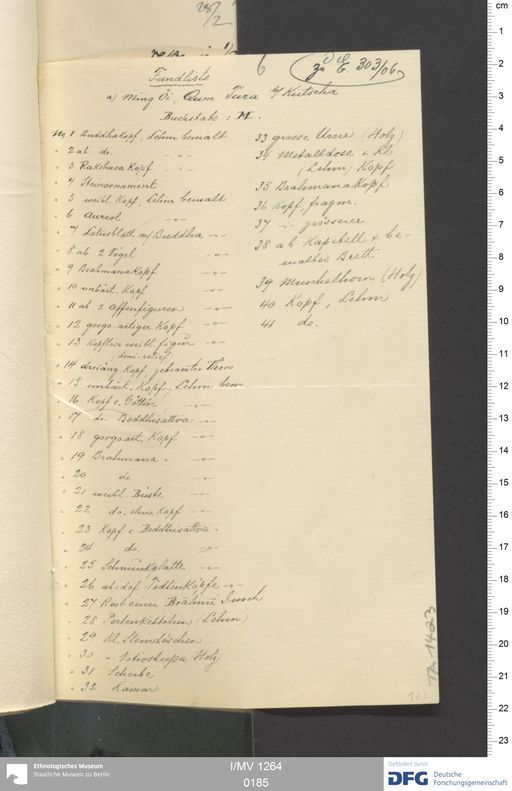 6
zu E. 303/06
Fundliste
a) Ming Öi, Qum Tura b/ Kutscha
Buchstabe: M.
No 1 Buddhakopf, Lehm bemalt
" 2 ab. do. -"-
" 3 Rakchasa Kopf -"-
" 4 Steinornament
" 5 weibl. Kopf, Lehm bemalt
" 6 Aureol -"-
" 7 Lotusblatt m/ Buddha -"-
" 8 ab 2 Vögel -"-
" 9 Brahmanakopf -"-
" 10 unbärt. Kopf -"-
" 11 ab 2 Affenfiguren -"-
" 12 gorgo-artiger Kopf -"-
" 13 Kopflose weibl. figur -"-
(demi-relief)
" 14 dreiäug. Kopf, gebrannter Thon
" 15 unbärt. Kopf, Lehm bem.
16 Kopf e. Göttin -"-
" 17 do. Boddhisattva -"-
" 18 gorgoart. Kopf -"-
" 19 Brahmana " -"-
" 20 do. -"-
" 21 weibl. Büste -"-
" 22 do. ohne Kopf -"-
" 23 Kopf e. Boddhisattva "
" 24 do. -"-
" 25 Schmuckplatte -"-
" 26 Todtenköpfe -"-
" 27 Rest einer Brāhmī Insch
" 28 Perlenkettchen (Lehm)
" 29 kl. Steindöschen
" 30 " Votivstupa (Holz)
" 31 Scherbe
" 32 Kamm
33 grosse Urne (Holz)
34 Metalldose u. kl.
(Lehm) Kopf
35 Brahmanakopf
36 Kopf, fragm.
37 -"- grösserer
38 ab Kapitell & be-
maltes Brett.
39 Muschelhorn (Holz)
40 Kopf, Lehm
41 do.
TA 1423
cm
1
2
3
4
5
6
7
8
9
10
11
12
13
14
15
16
17
18
19
20
21
22
23
Ethnologisches Museum
Staatliche Museen zu Berlin
I/MV 1264
0185
Gefördert durch
DFG Deutsche
Forschungsgemeinschaft